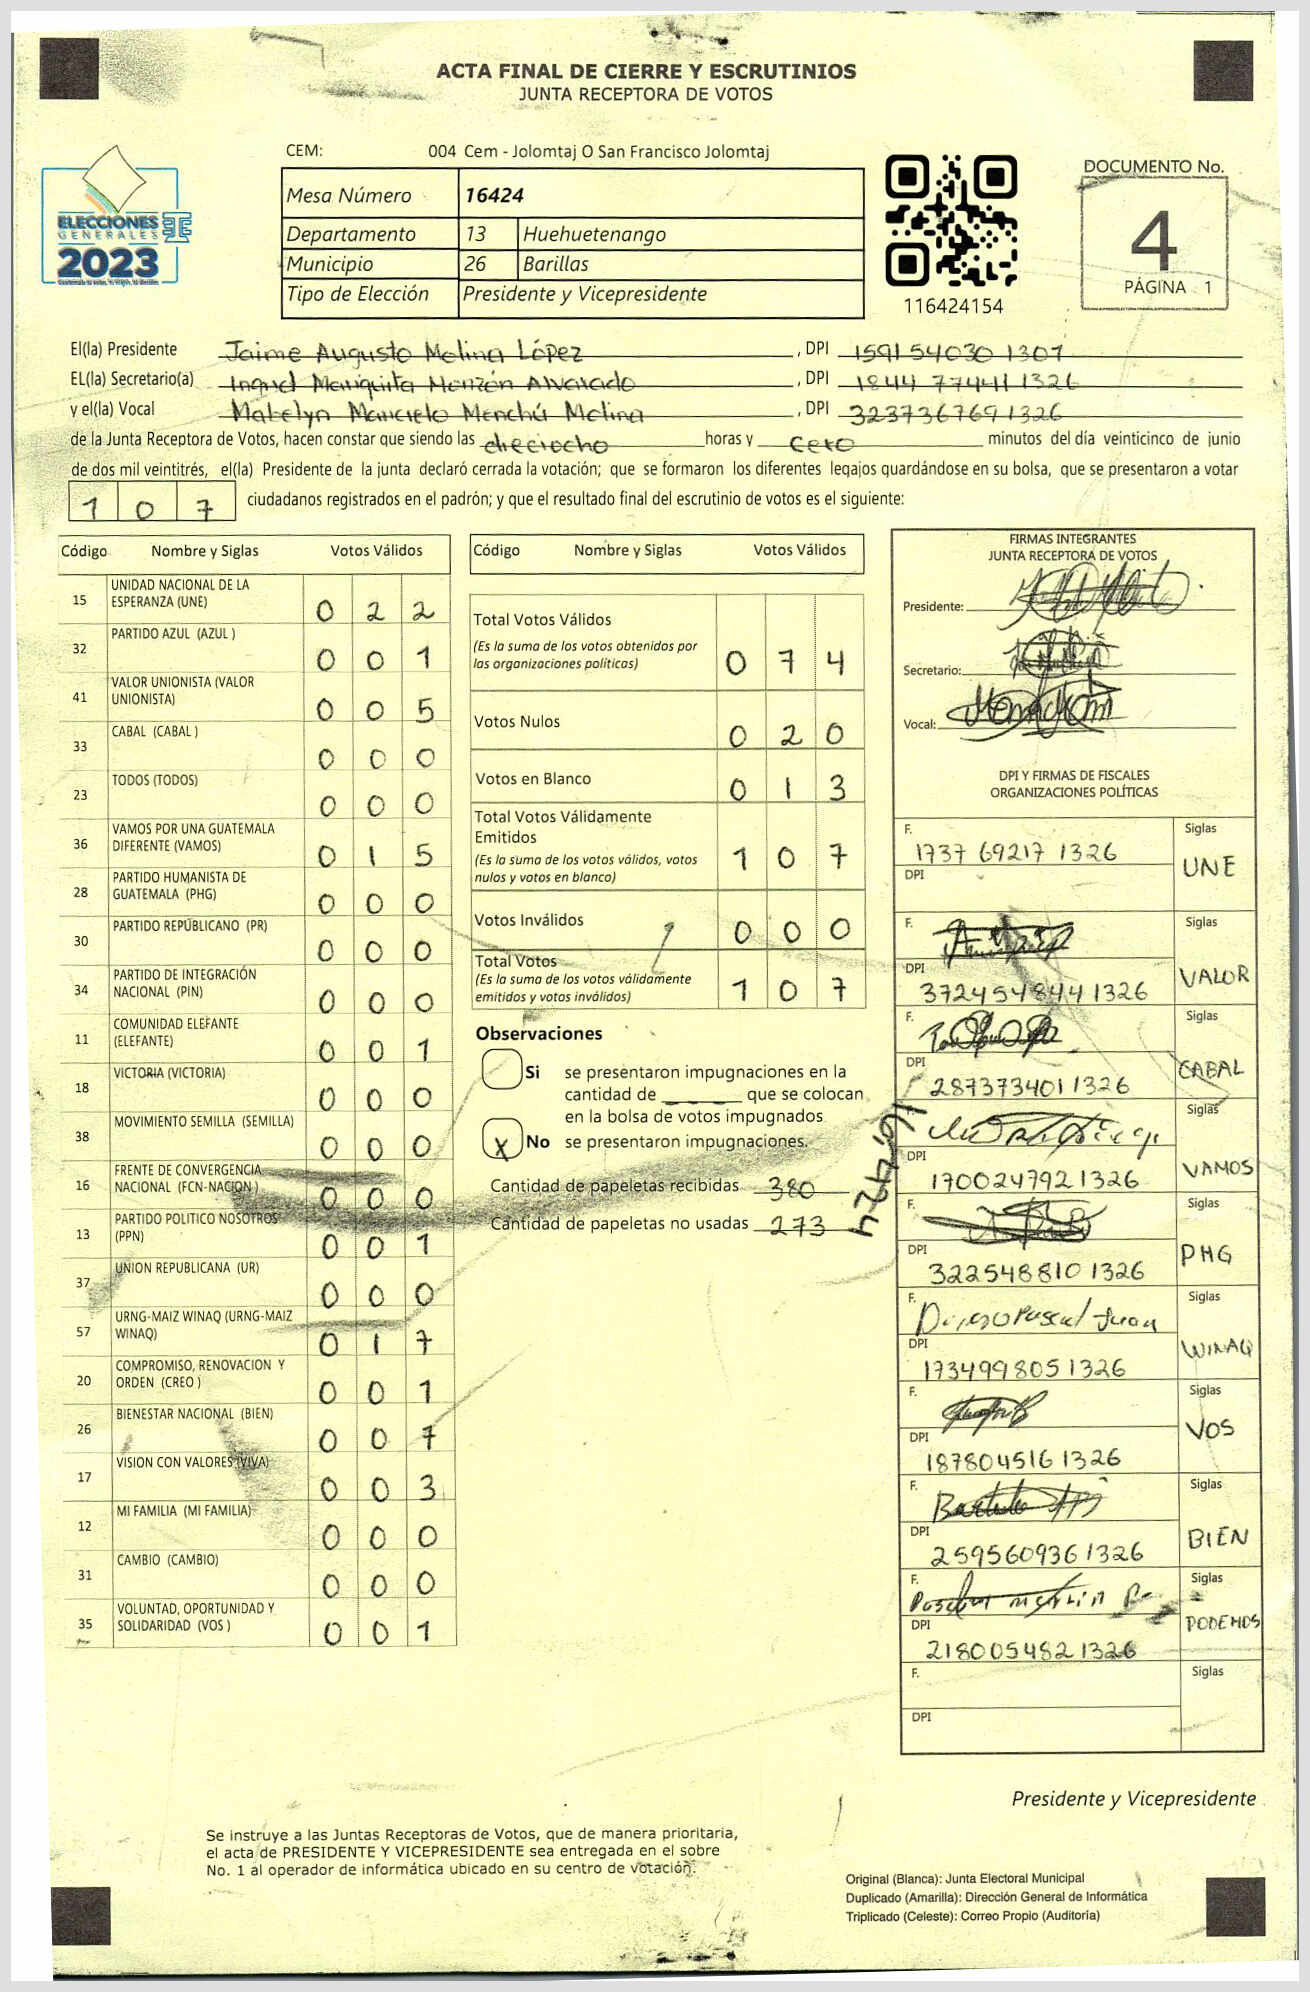 ACTA FINAL DE CIERRE Y ESCRUTINIOS
JUNTA RECEPTORA DE VOTOS
CEM: 004 Cem - Jolomtaj O San Francisco Jolomtaj
ELECCIONES
GENERALES
2023
Mesa Número 16424
Departamento 13 Huehuetenango
Municipio 26 Barillas
Tipo de Elección Presidente y Vicepresidente
116424154
DOCUMENTO No.
4
PÁGINA 1
El(la) Presidente Jaime Augusto Molina López, DPI 1591 54030 1307
EL(la) Secretario(a) Ingrid Mariquita Monzón Alvarado, DPI 1844 77441 1326
y el(la) Vocal Mabelyn Maricielo Menchú Molina, DPI 323736769 1326
de la Junta Receptora de Votos, hacen constar que siendo las dieciocho horas y cero minutos del día veinticinco de junio
de dos mil veintitrés, el(la) Presidente de la junta declaró cerrada la votación; que se formaron los diferentes legajos guardándose en su bolsa, que se presentaron a votar
107 ciudadanos registrados en el padrón; y que el resultado final del escrutinio de votos es el siguiente:
Código Nombre y Siglas Votos Válidos
15 UNIDAD NACIONAL DE LA ESPERANZA (UNE) 0 2 2
32 PARTIDO AZUL (AZUL ) 0 0 1
41 VALOR UNIONISTA (VALOR UNIONISTA) 0 0 5
33 CABAL (CABAL ) 0 0 0
23 TODOS (TODOS) 0 0 0
36 VAMOS POR UNA GUATEMALA DIFERENTE (VAMOS) 0 1 5
28 PARTIDO HUMANISTA DE GUATEMALA (PHG) 0 0 0
30 PARTIDO REPUBLICANO (PR) 0 0 0
34 PARTIDO DE INTEGRACIÓN NACIONAL (PIN) 0 0 0
11 COMUNIDAD ELEFANTE (ELEFANTE) 0 0 1
18 VICTORIA (VICTORIA) 0 0 0
38 MOVIMIENTO SEMILLA (SEMILLA) 0 0 0
16 FRENTE DE CONVERGENCIA NACIONAL (FCN-NACION ) 0 0 0
13 PARTIDO POLITICO NOSOTROS (PPN) 0 0 1
37 UNION REPUBLICANA (UR) 0 0 0
57 URNG-MAIZ WINAQ (URNG-MAIZ WINAQ) 0 1 7
20 COMPROMISO, RENOVACION Y ORDEN (CREO ) 0 0 1
26 BIENESTAR NACIONAL (BIEN) 0 0 7
17 VISION CON VALORES (VIVA) 0 0 3
12 MI FAMILIA (MI FAMILIA) 0 0 0
31 CAMBIO (CAMBIO) 0 0 0
35 VOLUNTAD, OPORTUNIDAD Y SOLIDARIDAD (VOS ) 0 0 1
Código Nombre y Siglas Votos Válidos
Total Votos Válidos
(Es la suma de los votos obtenidos por
las organizaciones políticas) 0 7 4
Votos Nulos 0 2 0
Votos en Blanco 0 1 3
Total Votos Válidamente
Emitidos
(Es la suma de los votos válidos, votos
nulos y votos en blanco) 1 0 7
Votos Inválidos 0 0 0
Total Votos
(Es la suma de los votos válidamente
emitidos y votos inválidos) 1 0 7
Observaciones
Si se presentaron impugnaciones en la
cantidad de que se colocan
en la bolsa de votos impugnados
X No se presentaron impugnaciones.
Cantidad de papeletas recibidas 380
Cantidad de papeletas no usadas 273
16,424
FIRMAS INTEGRANTES
JUNTA RECEPTORA DE VOTOS
Presidente:
Secretario:
Vocal:
DPI Y FIRMAS DE FISCALES
ORGANIZACIONES POLÍTICAS
F. 1737 69217 1326 Siglas
DPI UNE
F. Siglas
DPI 372454844 1326 VALOR
F. Siglas
DPI 287373401 1326 CABAL
F. Siglas
DPI 170024792 1326 VAMOS
F. Siglas
DPI 322548810 1326 PHG
F. Siglas
DPI 173499805 1326 WINAQ
F. Siglas
DPI 187804516 1326 VOS
F. Siglas
DPI 259560936 1326 BIEN
F. Siglas
DPI 218005482 1326 PODEMOS
F. Siglas
DPI
Presidente y Vicepresidente
Se instruye a las Juntas Receptoras de Votos, que de manera prioritaria,
el acta de PRESIDENTE Y VICEPRESIDENTE sea entregada en el sobre
No. 1 al operador de informática ubicado en su centro de votación.
Original (Blanca): Junta Electoral Municipal
Duplicado (Amarilla): Dirección General de Informática
Triplicado (Celeste): Correo Propio (Auditoría)